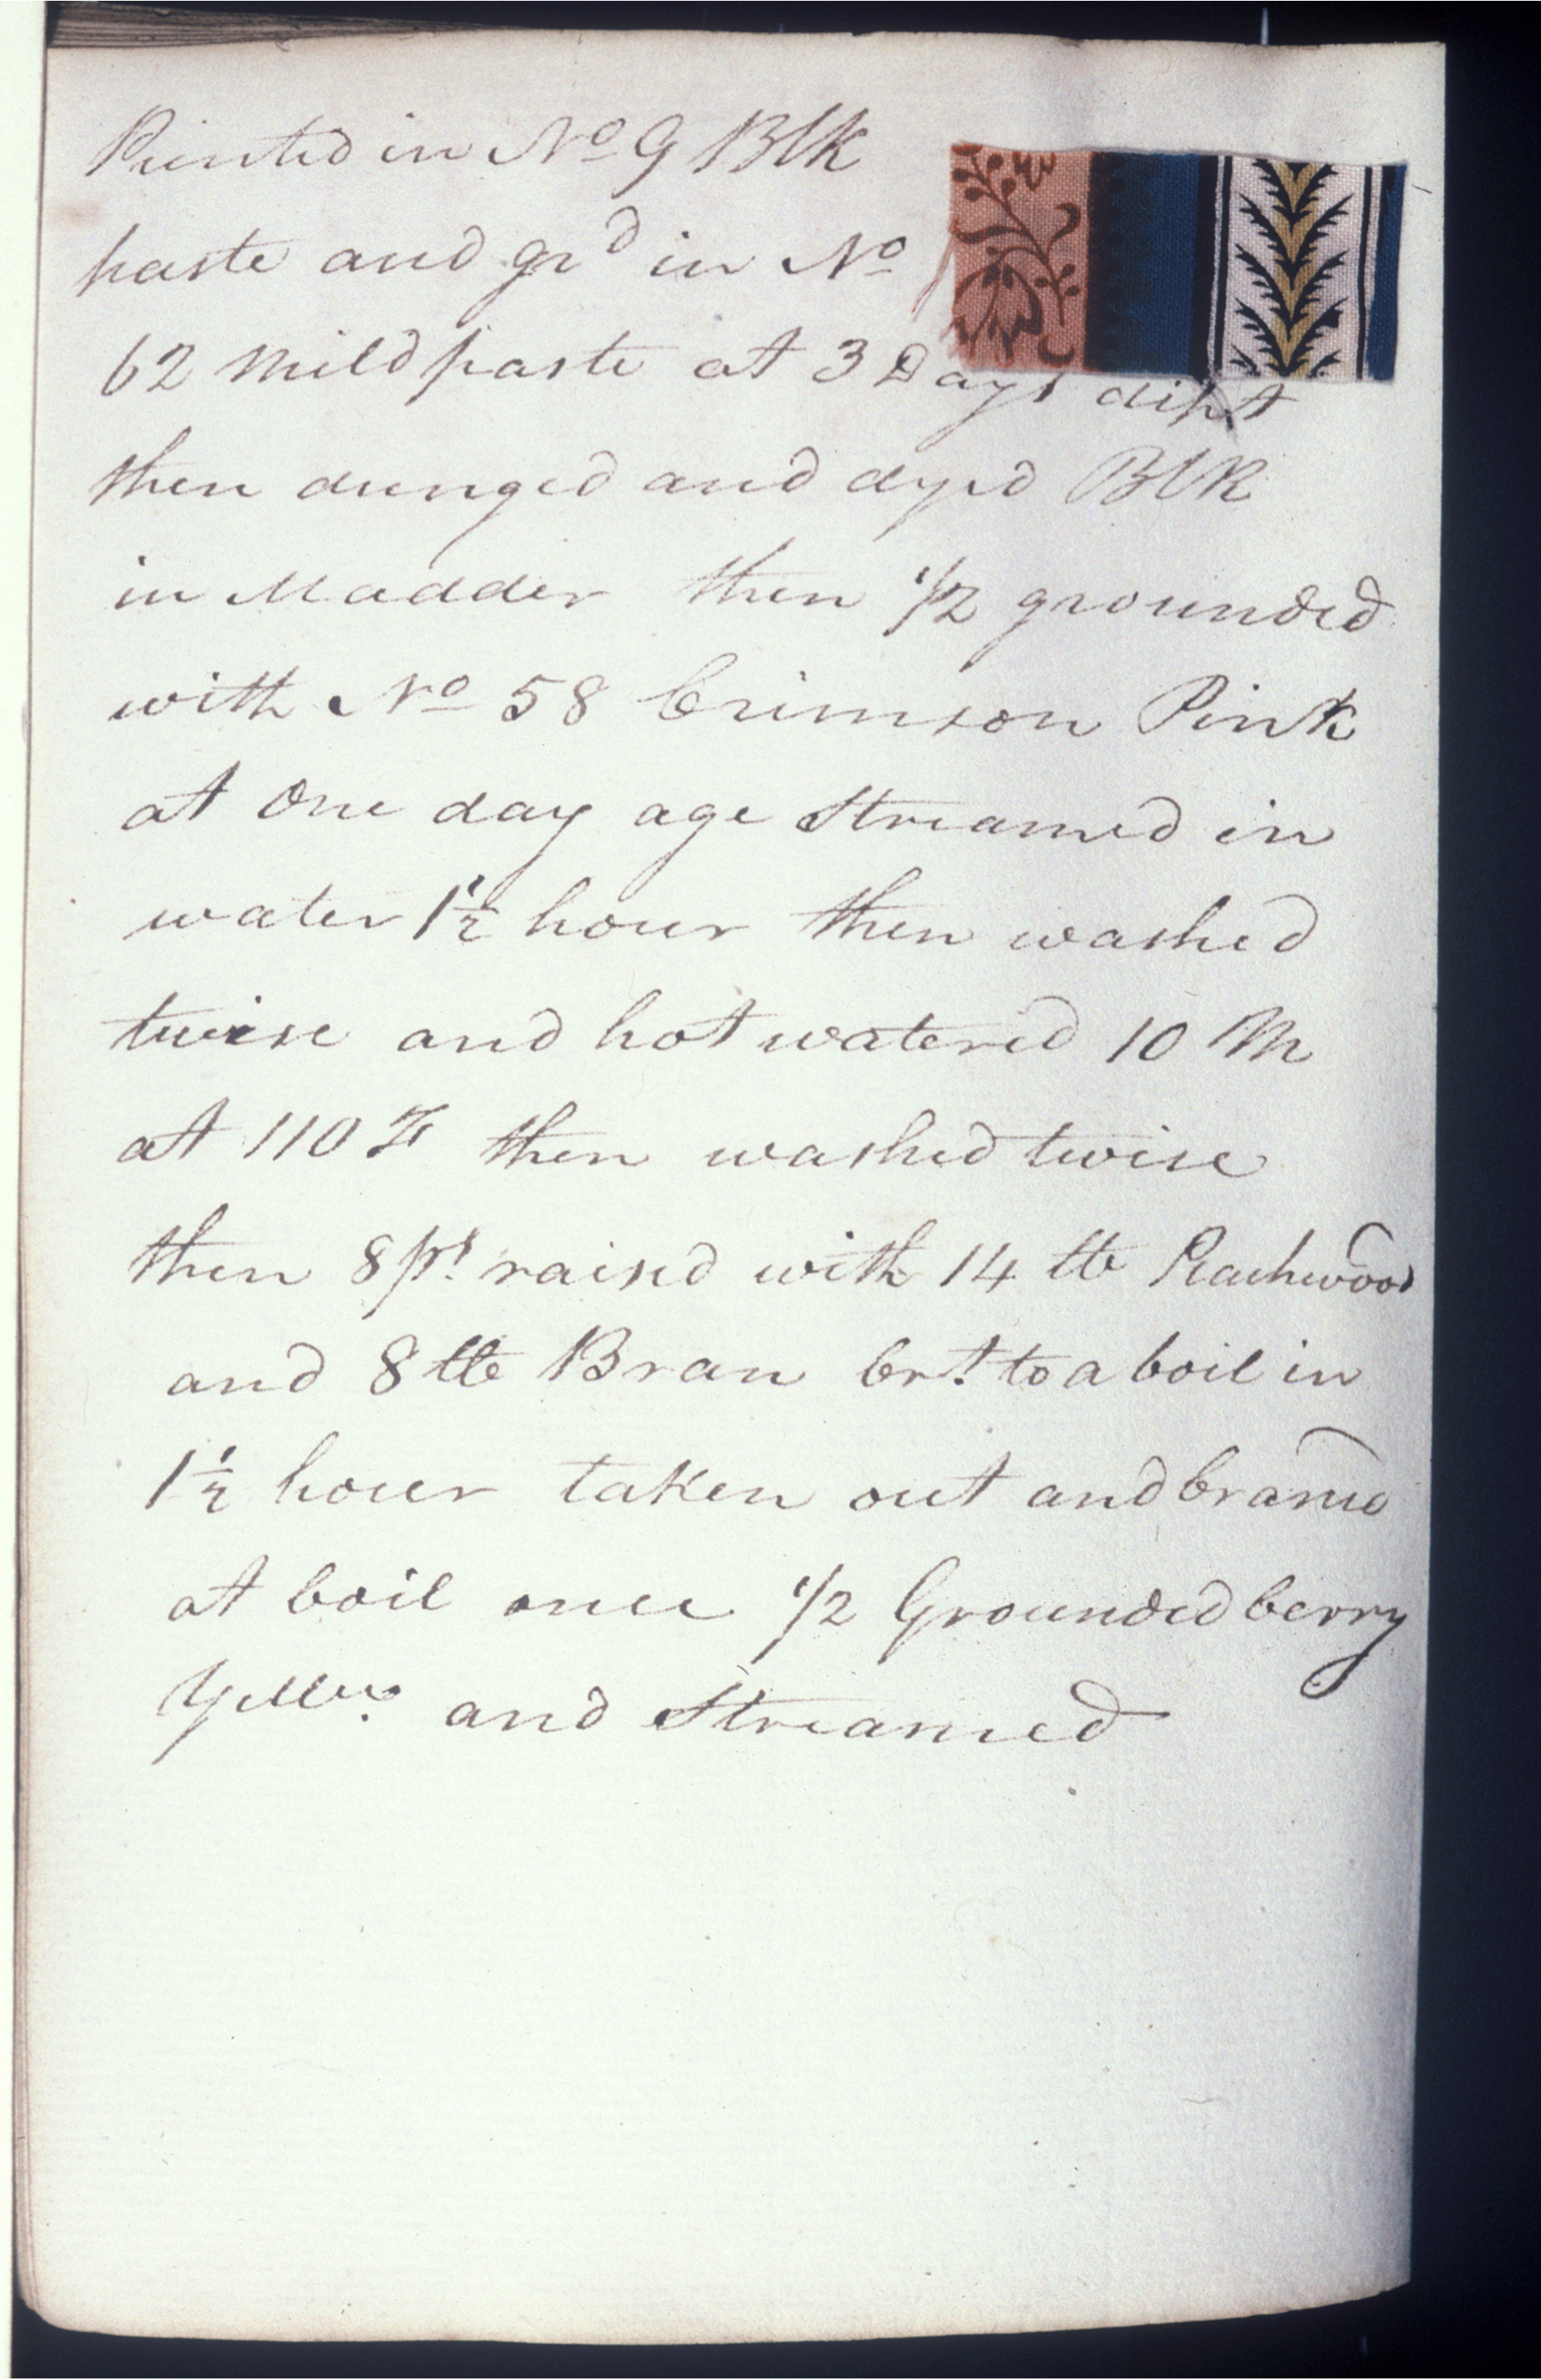 Printed in No 9 Blk
paste and grd in No
62 mild paste at 3 Days dipt
then dunged and dyed Blk
in Madder then 1/2 grounded
with No 58 Crimson Pink
at One day age Streamed in
water 1½ hour then washed
twise and hot watered 10 M
at 110 F then washed twise
then 8 ps. raised with 14 lb Peachwood
and 8 lb Bran brt. to a boil in
1½ hour taken out and braned
at boil once 1/2 Grounded berry
Yellw. and Streamed